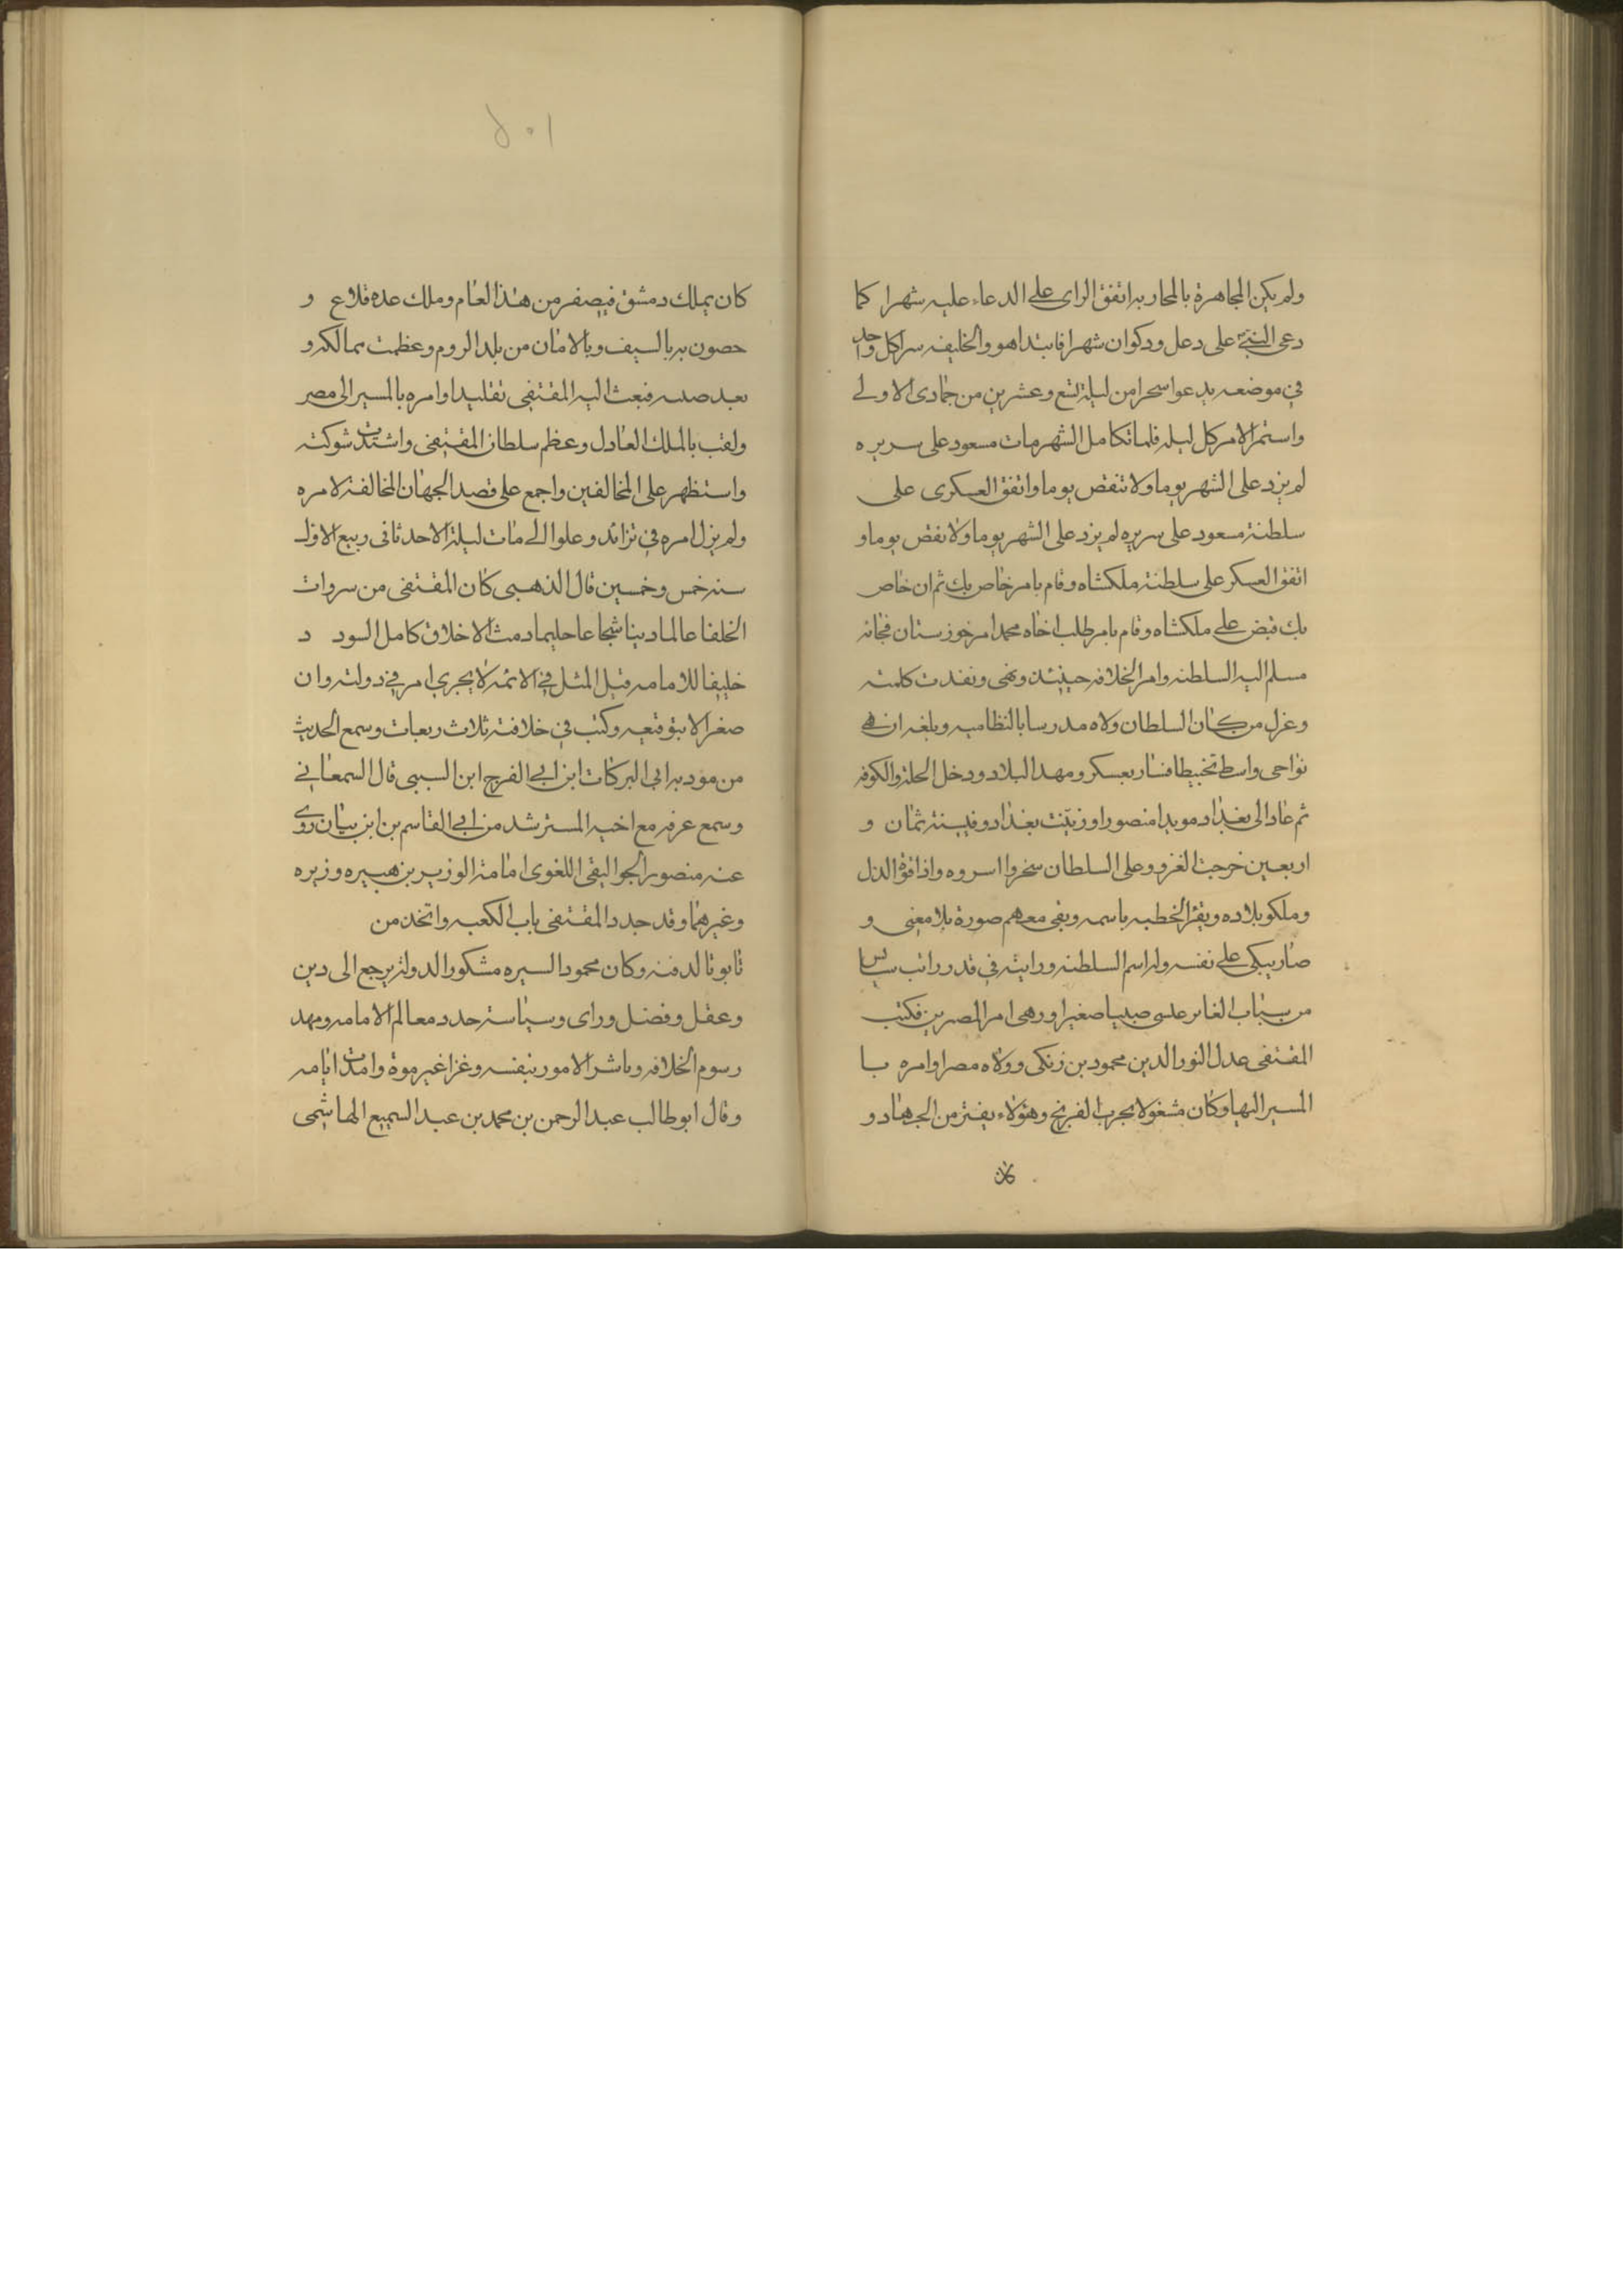 ولم يكن المجاهرة بالمحاربه اتفق الراى على الدعاء عليه شهرا كما
دعى النبي على دعل ودكوان شهرا فابتدا هو والخليفه سرا كل واحد
في موضعه يدعوا سحرا من ليلة تسع وعشرين من جمادى الاولے
واستمر الامر كل ليله فلما تكامل الشهر مات مسعود على سريره
لم يزد على الشهر يوما ولا تنقص يوما واتفق العسكرى على
سلطنة مسعود على سريره لم يزد على الشهر يوما ولا نقص يوما و
اتفق العسكر على سلطنة ملكشاه وقام بامر خاص بك ثم ان خاص
بك قبض على ملكشاه وقام بامر طلب اخاه محمدا مر خوزستان فجائه
مسلم اليه السلطنه وامر الخلافه حينئذ ونهى ونفدت كلمته
وعزل من كان السلطان ولاه مدرسا بالنظاميه وبلغه ان في
نواحى واسط تخبيطا فسار بعسكر ومهد البلاد ودخل الحلة والكوفه
ثم عاد الى بغداد مويدا منصورا وزينت بغداد وفي سنة ثمان و
اربعين خرجت الغزو وعلى السلطان سخروا اسروه واذاقوة الذل
وملكو بلاده وبقر الخطبه باسمه وبقى معهم صورة بلا معنى و
صار يبكى على نفسه وله اسم السلطنه وراتبه في قدر راتب سايس
من سباب الغابر علسى صبيا صغيرا ورهى امر المصرين فكتب
المقتفى عدل النور الدين محمود بن زنكى وولاه مصر وامره با
المسير اليها وكان مشغولا بحرب الفرنج وهؤلاء يفتر من الجهاد و
كان
١٠٥
كان يملك دمشق في صفر من هذا العام وملك عده قلاع و
حصون بر بالسيف وبالامان من بلد الروم وعظمت ممالكه و
بعد صيته فبعث اليه المقتفى تقليدا وامره بالمسير الى مصر
ولقب بالملك العادل وعظم سلطان المقتفى واشتدت شوكته
واستظهر على المخالفين واجمع على قصد الجهان المخالفة لامره
ولم يزل امره في تزائد وعلوا الے مات ليلة الاحد ثانى ربيع الاول
سنه خمس وخمسين قال الذهبى كان المقتفى من سروات
الخلفا عالما دينا شجاعا حليما دمث الاخلاق كامل السود د
خليفا للامامه قيل المثل في الائمه لا يجري امر في دولته وان
صغر الا بتوقيعه وكتب في خلافته ثلاث ربعات وسمع الحديث
من مودبه ابى البركات ابن ابي الفرج ابن السيبى قال السمعانے
وسمع عرفه مع اخيه المسترشد من ابي القاسم بن ابن بيان روى
عنه منصور الجواليقى اللغوى امامة الوزير بن هبيره وزيره
وغيرهما وقد جدد المقتفى باب الكعبه واتخذ من
تابوتا لدفنه وكان محمود السيره مشكور الدوله يرجع الى دين
وعقل وفضل وراى وسياسة حدد معالم الامامه ومهد
رسوم الخلافه وباشر الامور بنفسه وغزا غير موة وامتدت ايامه
وقال ابو طالب عبد الرحمن بن محمد بن عبد السميع الهاشمى